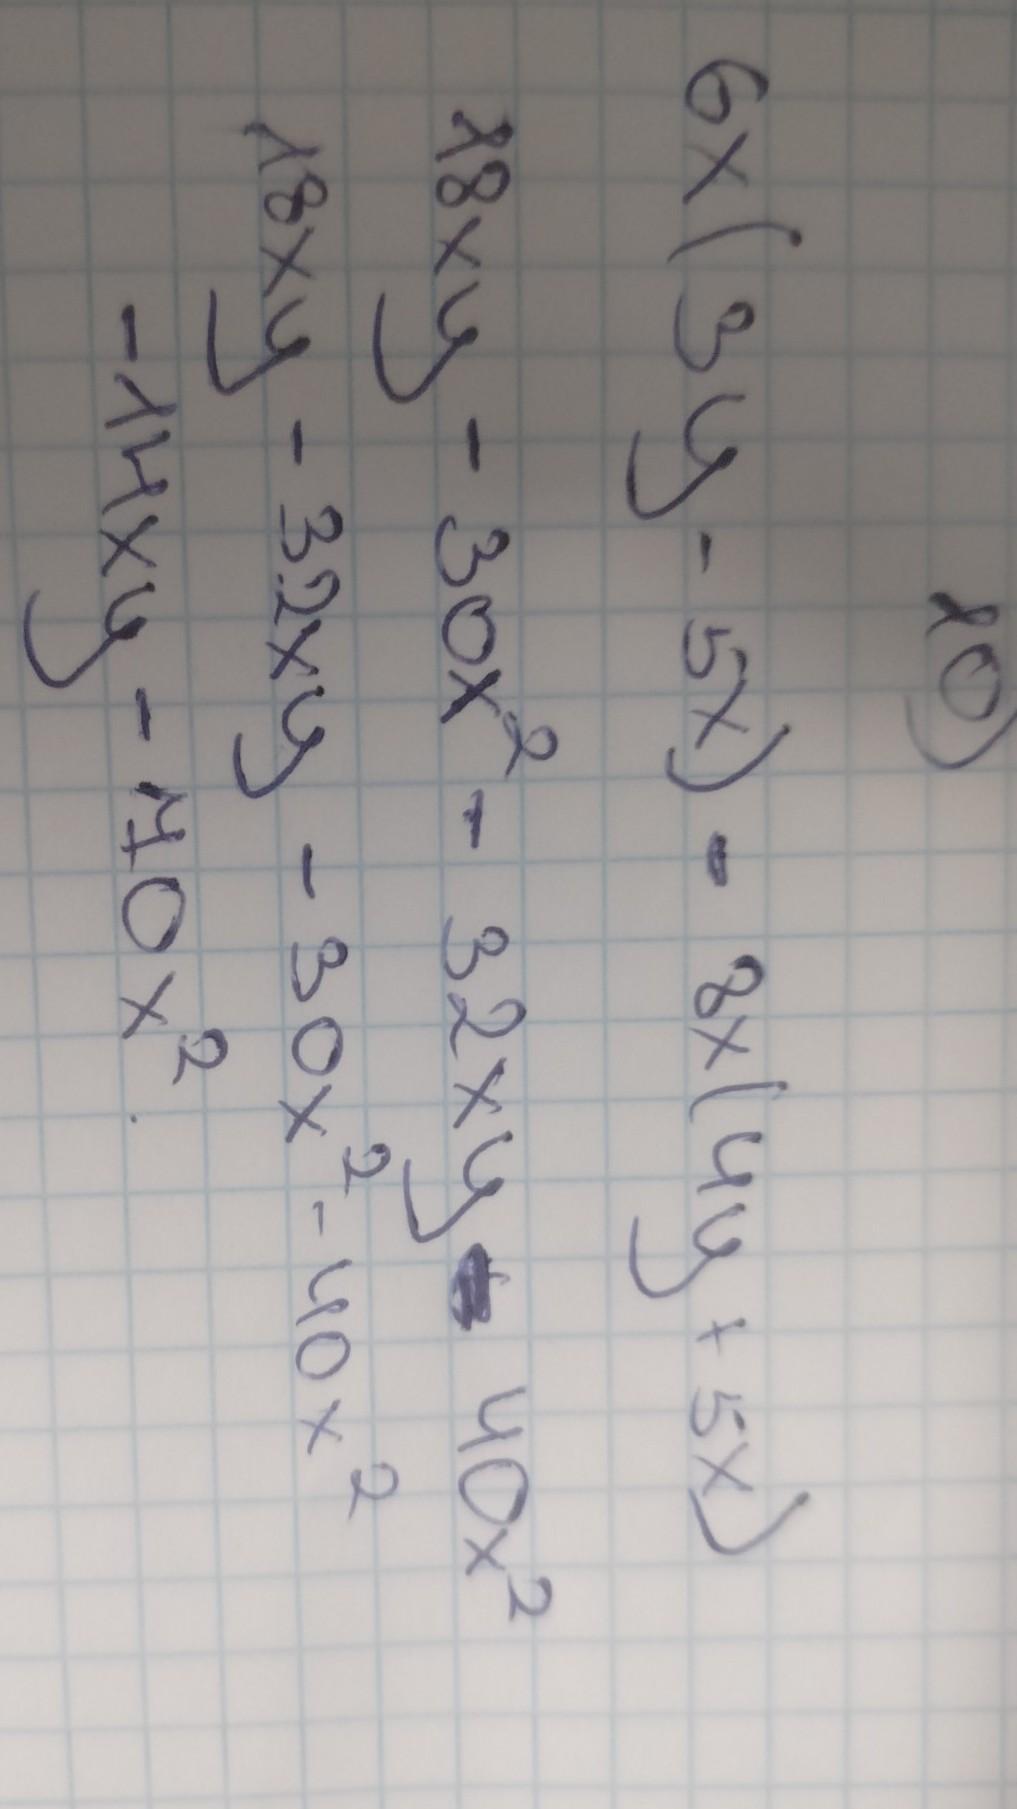 10)
6x(3y-5x) - 8x(4y+5x)
18xy - 30x² - 32xy - 40x²
18xy - 32xy - 30x² - 40x²
-14xy - 70x²